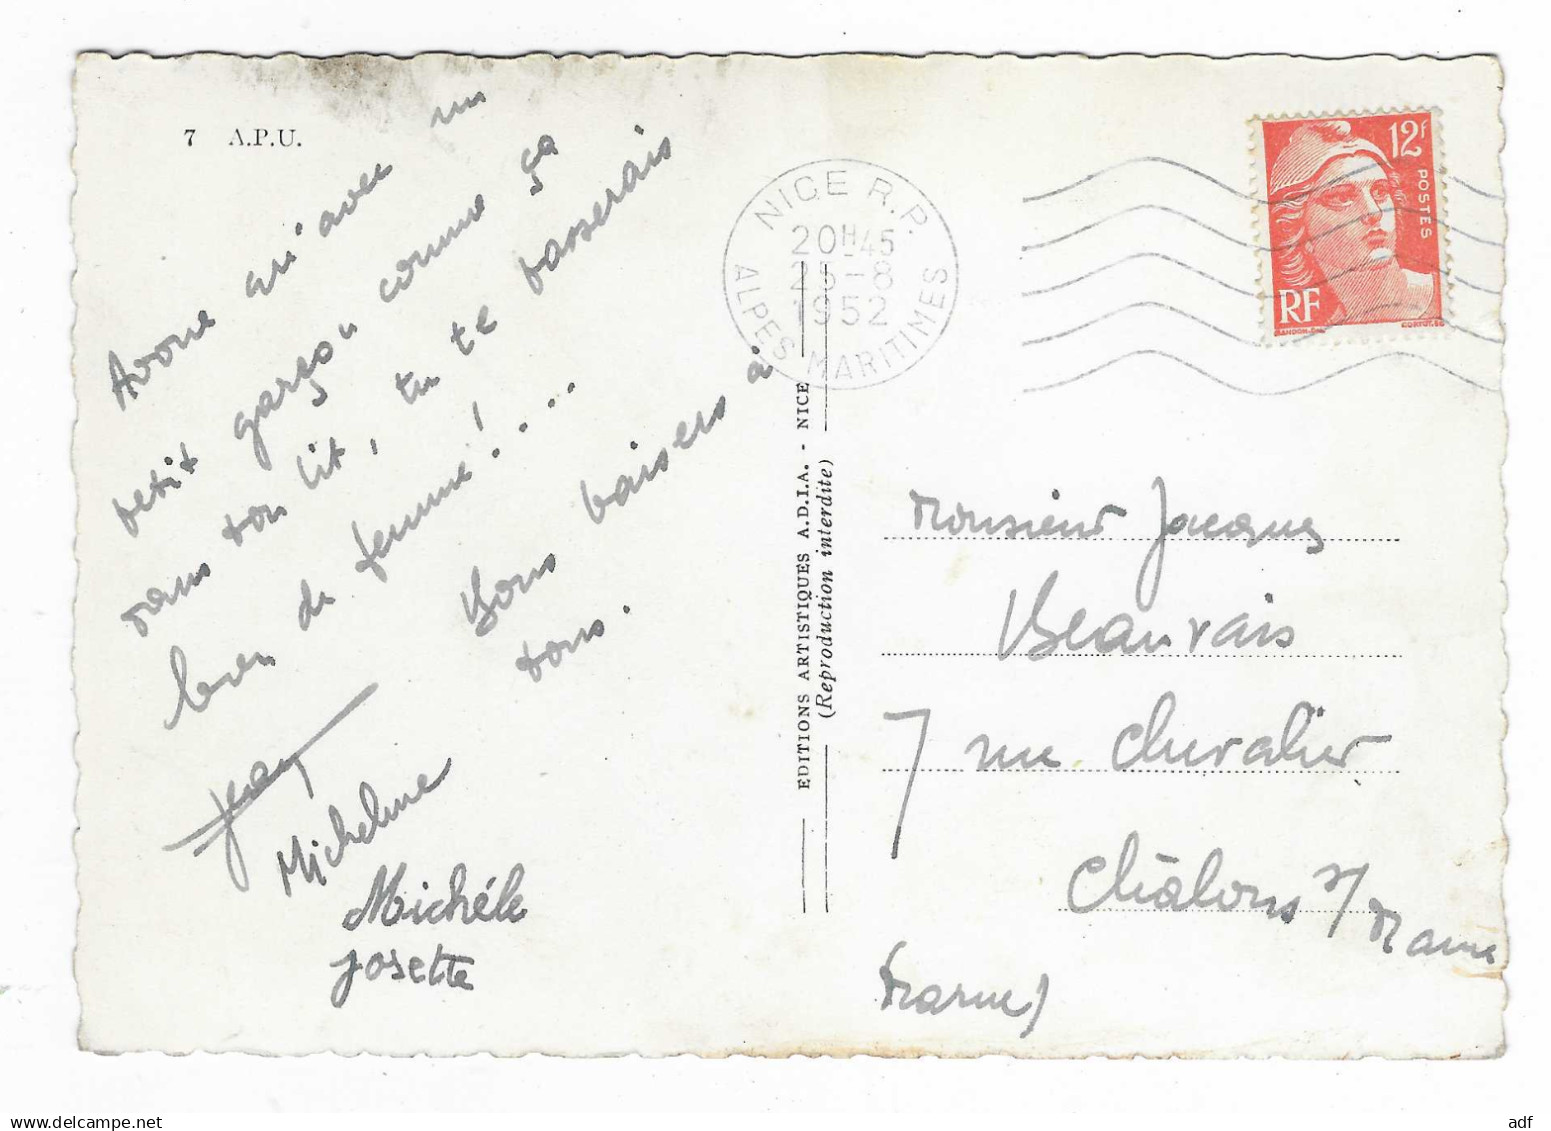 7 A.P.U.
Avoue qu'avec un
petit garçon comme ça
dans ton lit, tu te passerais
bien de femme!....
Bons baisers à
tous.
Jean
Micheline
Michéle
Josette
NICE R.P.
20H45
25-8
1952
ALPES MARITIMES
12f
POSTES
RF
GANDON
CORTOT.SC
EDITIONS ARTISTIQUES A.D.I.A. - NICE
(Reproduction interdite)
Monsieur Jacques
Beauvais
7 rue Chevalier
Châlons s/ Marne
(Marne)
adf